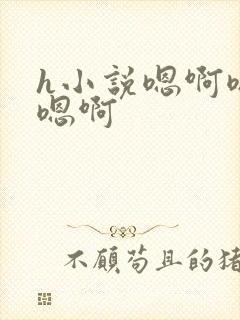 h小說嗯啊
嗯啊
不顧苟且的猪